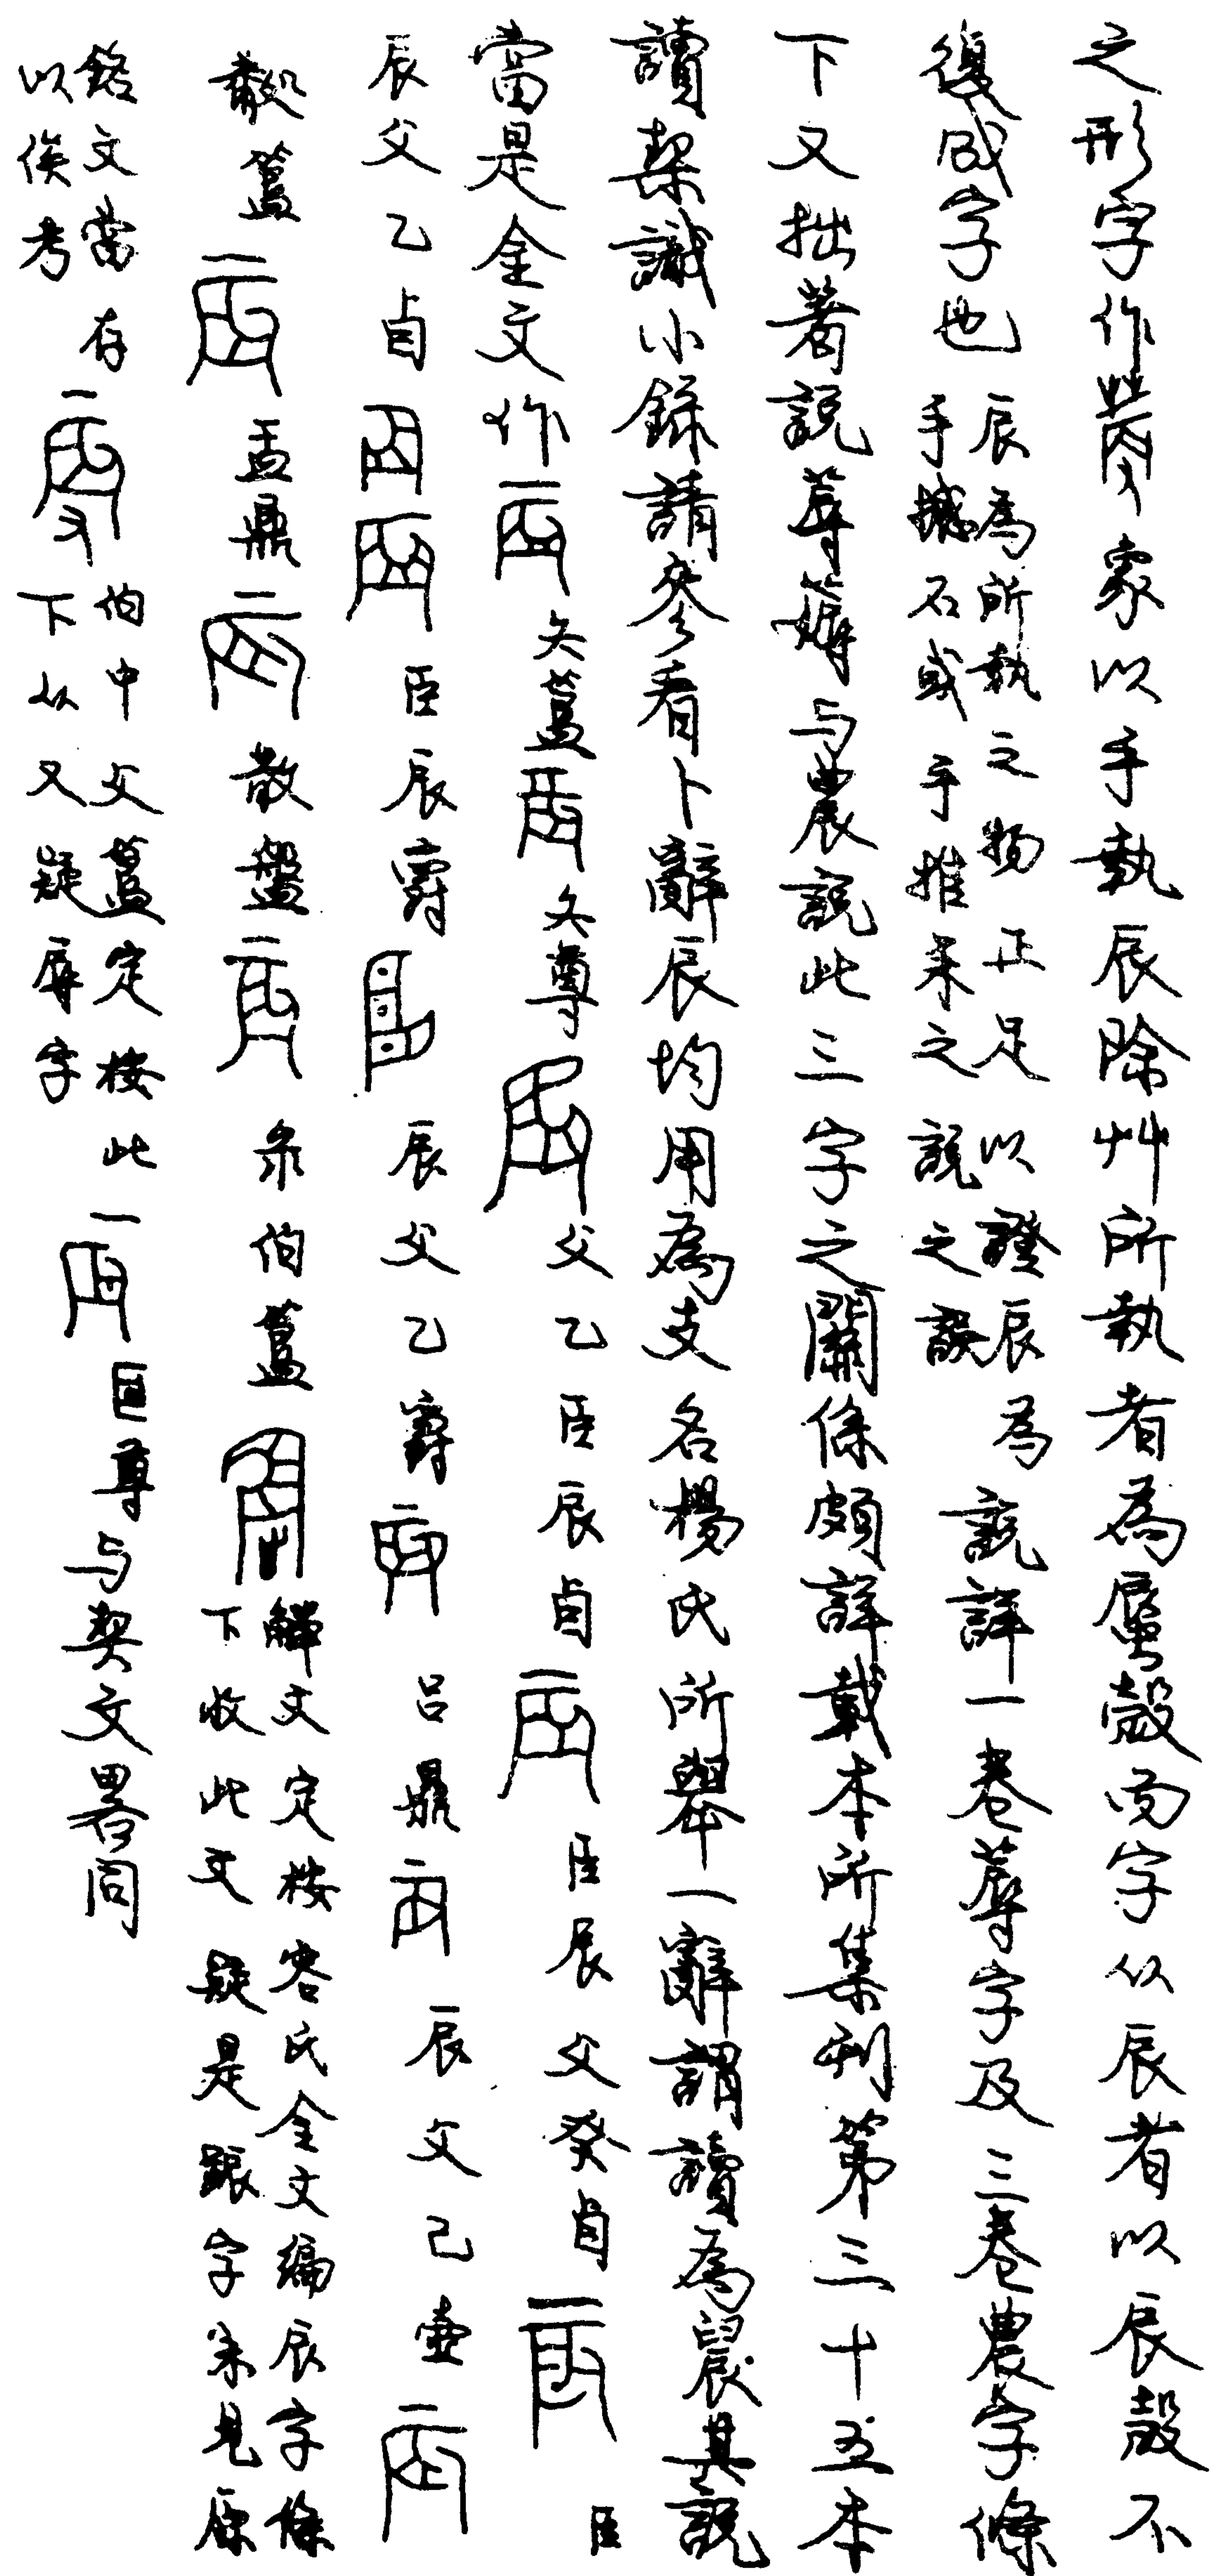 之形字作 象以手執辰除艸所執者為蜃殼而字从辰者以辰殼不
復成字也辰為所執之物正足以證辰為手推石或手推耒之說之誤說詳一卷蓐字及三卷農字條
下又拙著說蓐薅与農說此三字之關係頗詳載本所集刊第三十五本
讀栔識小錄請參看卜辭辰均用為支名楊氏所舉一辭謂讀為晨其說
當是金文作 矢簋 矢尊 父乙臣辰卣 臣辰父癸卣 臣
辰父乙卣 臣辰爵 辰父乙爵 呂鼎 辰父己壺
簋 盂鼎 散盤 彔伯簋 觶文定按容氏金文編辰字條下收此文疑是踬字未見原
銘文當存以俟考 伯中父簋定按此下从又疑辱字 臣尊与契文畧同